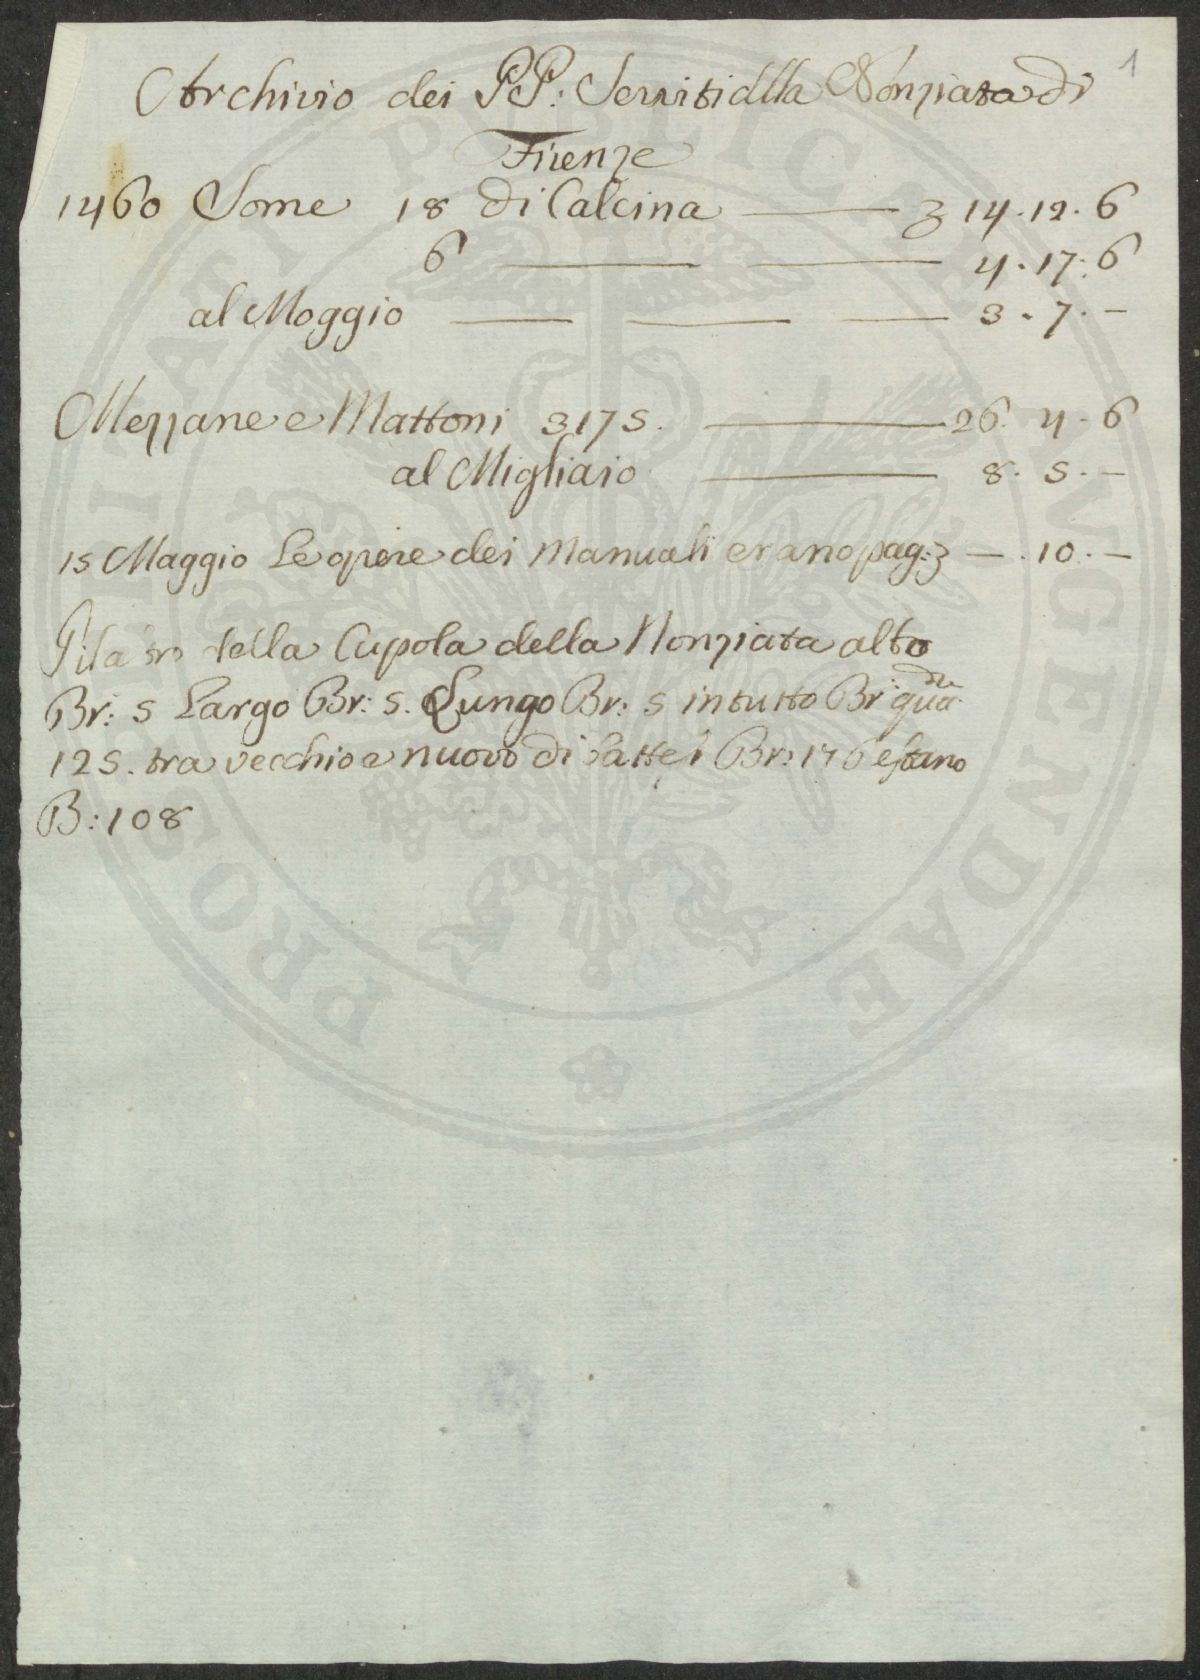 1
Archivio dei PP: Serviti dlla Nonziata di
Firenze
1460 Some 18 di Calcina — ʒ 14.12.6
6 — — 4.17.6
al Moggio — — — 3.7.–
Mezzane e Mattoni 3175. — 26.4.6
al Migliaio — 8.5.–
15 Maggio Le opere dei Manuali erano pag: ʒ —.10.–
della Cupola della Nonziata alto
Br: 5 Largo Br: 5. Lungo Br: 5 in tutto Br: qua.dre
125. tra vecchio e nuovo di Br: 17
B: 108
PROSPERITATI PUBLICAE AUGENDAE